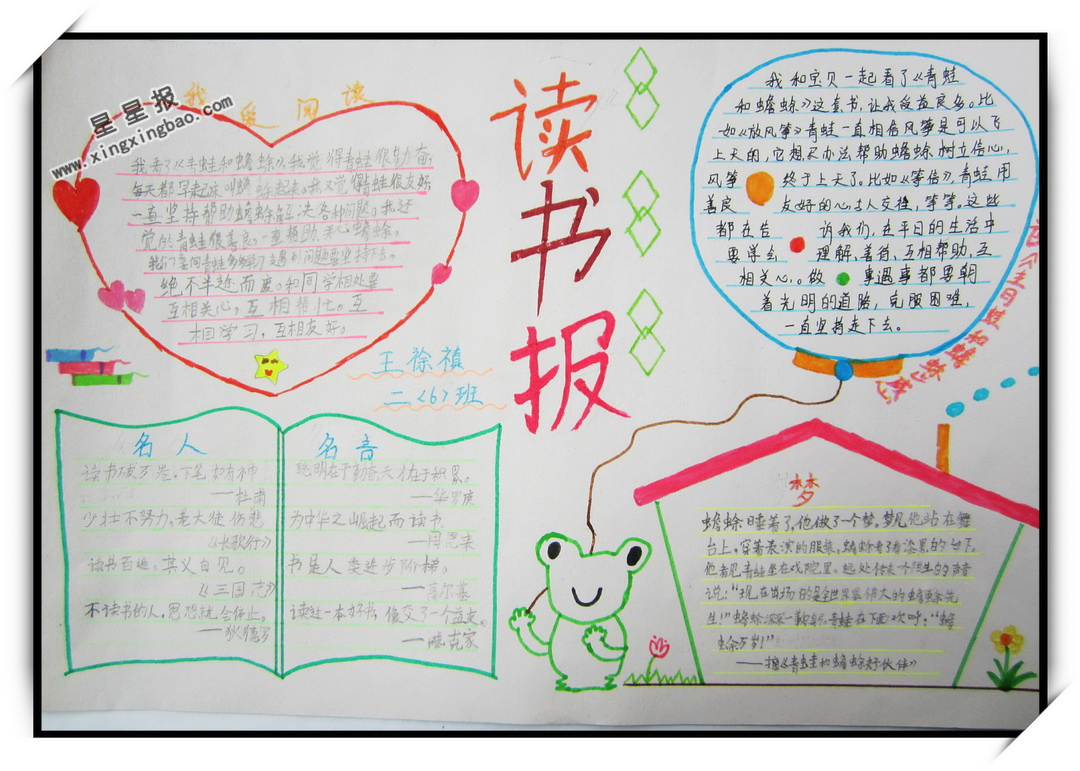 星星报
www.xingxingbao.com
我爱阅读
我看了《青蛙和蟾蜍》,我觉得青蛙很勤奋,
每天都早起床叫蟾蜍起来。我又觉得青蛙很友好,
一直坚持帮助蟾蜍解决各种问题。我还
觉的青蛙很善良,一直帮助、关心蟾蜍。
我们要向青蛙多学习,遇到问题要坚持下去。
绝不半途而废。和同学相处要
互相关心,互相帮忙。互
相学习,互相友好。
王徐禛
二〈6〉班
读书报
我和宝贝一起看了《青蛙
和蟾蜍》这套书,让我受益良多。比
如《放风筝》青蛙一直相信风筝是可以飞
上天的,它想尽办法帮助蟾蜍树立信心,
风筝终于上天了。比如《等信》,青蛙用
善良友好的心去人交往,等等。这些
都在告诉我们,在平日的生活中
要学会理解、善待、互相帮助、互
相关心。做事遇事都要朝
着光明的道路,克服困难,
一直坚持走下去。
青蛙和蟾蜍
名人名言
读书破万卷,下笔如有神
——杜甫
少壮不努力,老大徒伤悲
《长歌行》
读书百遍,其义自见。
《三国志》
不读书的人,思想就会停止。
——狄德罗
聪明在于勤奋,天才在于积累。
——华罗庚
为中华之崛起而读书
——周恩来
书是人类进步阶梯。
——高尔基
读过一本好书,像交了一个益友。
——臧克家
梦
蟾蜍睡着了,他做了一个梦,梦见他站在舞
台上,穿着表演的服装,蟾蜍看了看漆黑的台下。
他看见青蛙坐在戏院里。远处传来一个陌生的声音
说:“现在出场的是全世界最伟大的蟾蜍先
生!”蟾蜍深深一鞠躬,青蛙在下面欢叫:“蟾
蜍万岁!”
——摘《青蛙和蟾蜍好伙伴》